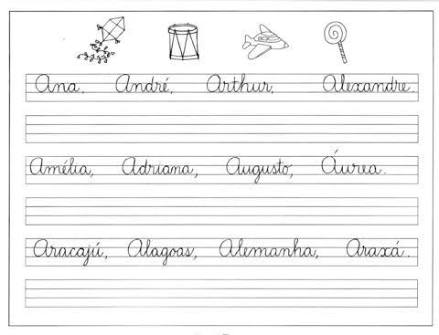 Ana. André, Arthur, Alexandre.
Amélia, Adriana, Augusto, Áurea.
Aracajú, Alagoas, Alemanha, Araxá.